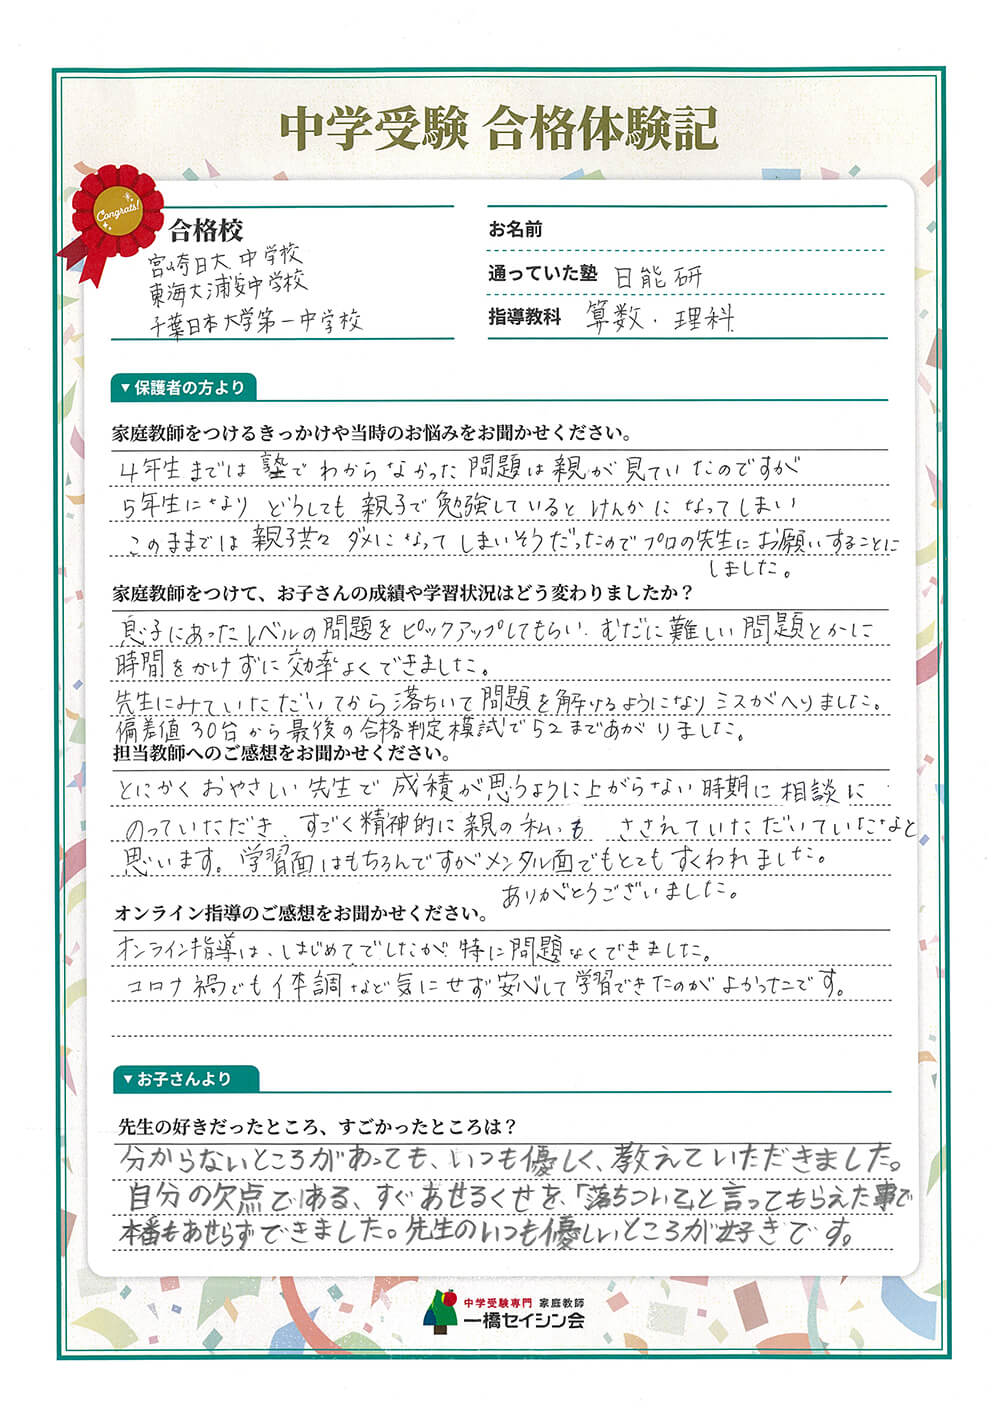 中学受験 合格体験記
Congrats!
合格校
宮崎日大 中学校
東海大浦安中学校
千葉日本大学第一中学校
お名前
通っていた塾 日能研
指導教科 算数・理科
▼保護者の方より
家庭教師をつけるきっかけや当時のお悩みをお聞かせください。
4年生までは塾でわからなかった問題は親が見ていたのですが
5年生になり どうしても親子で勉強しているとけんかになってしまい
このままでは親子共々ダメになってしまいそうだったのでプロの先生にお願いすることに
しました。
家庭教師をつけて、お子さんの成績や学習状況はどう変わりましたか？
息子にあったレベルの問題をピックアップしてもらい、むだに難しい問題とかに
時間をかけずに効率よくできました。
先生にみていただいてから落ちいて問題を解けるようになりミスがへりました。
偏差値30台から最後の合格判定模試で52まであがりました。
担当教師へのご感想をお聞かせください。
とにかくおやさしい先生で成積が思うように上がらない時期に相談に
のっていただき、すごく精神的に親の私も ささされていただいていたなと
思います。学習面はもちろんですがメンタル面でもとてもすくわれました。
ありがとうございました。
オンライン指導のご感想をお聞かせください。
オンライン指導は、はじめてでしたが特に問題なくできました。
コロナ禍でも体調など気にせず安心して学習できたのがよかったです。
▼お子さんより
先生の好きだったところ、すごかったところは？
分からないところがあっても、いつも優しく、教えていただきました。
自分の欠点である、すぐあせるくせを、「落ちついて」と言ってもらえた事で
本番もあせらずできました。先生のいつも優しいところが好きです。
中学受験専門 家庭教師
一橋セイシン会